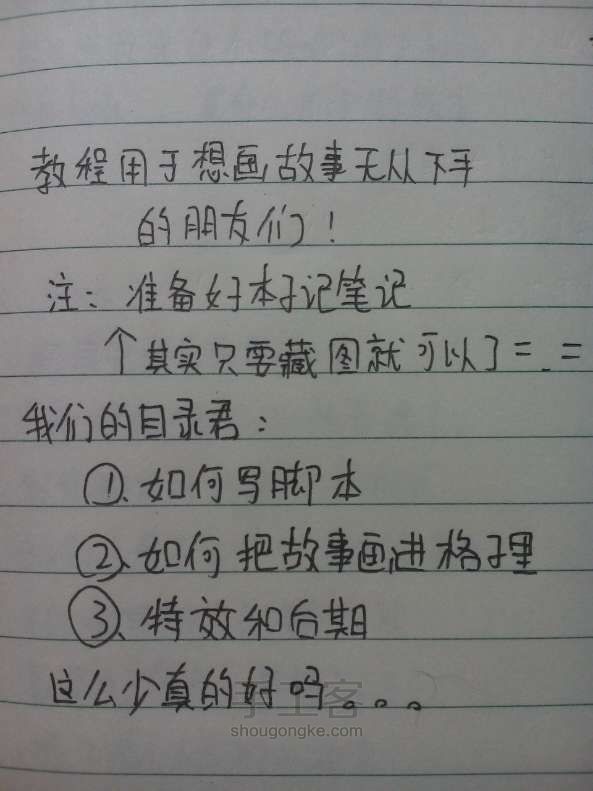 教程用于想画故事无从下手
的朋友们！
注：准备好本子记笔记
↑其实只要藏图就可以了=_=
我们的目录君：
①、如何写脚本
②、如何把故事画进格子里
③、特效和后期
这么少真的好吗。。。
手工客
shougongke.com